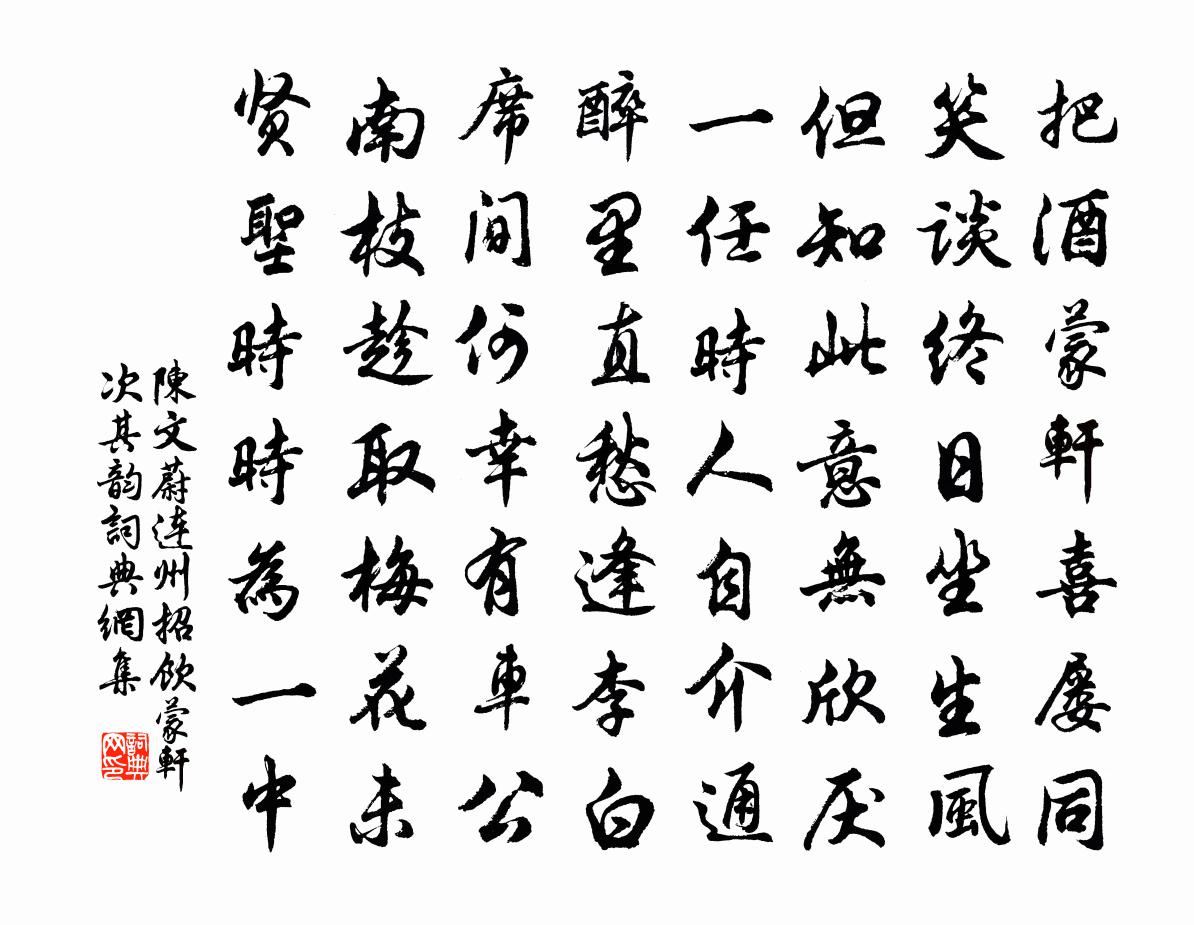 把酒蒙軒喜屡同
笑談终日坐生風
但知此意無欣厌
一任時人自介通
醉里直愁逢李白
席间何幸有車公
南枝趁取梅花未
贤聖時時為一中
陳文蔚连州招饮蒙軒
次其韵詞典網集
詞典
网印